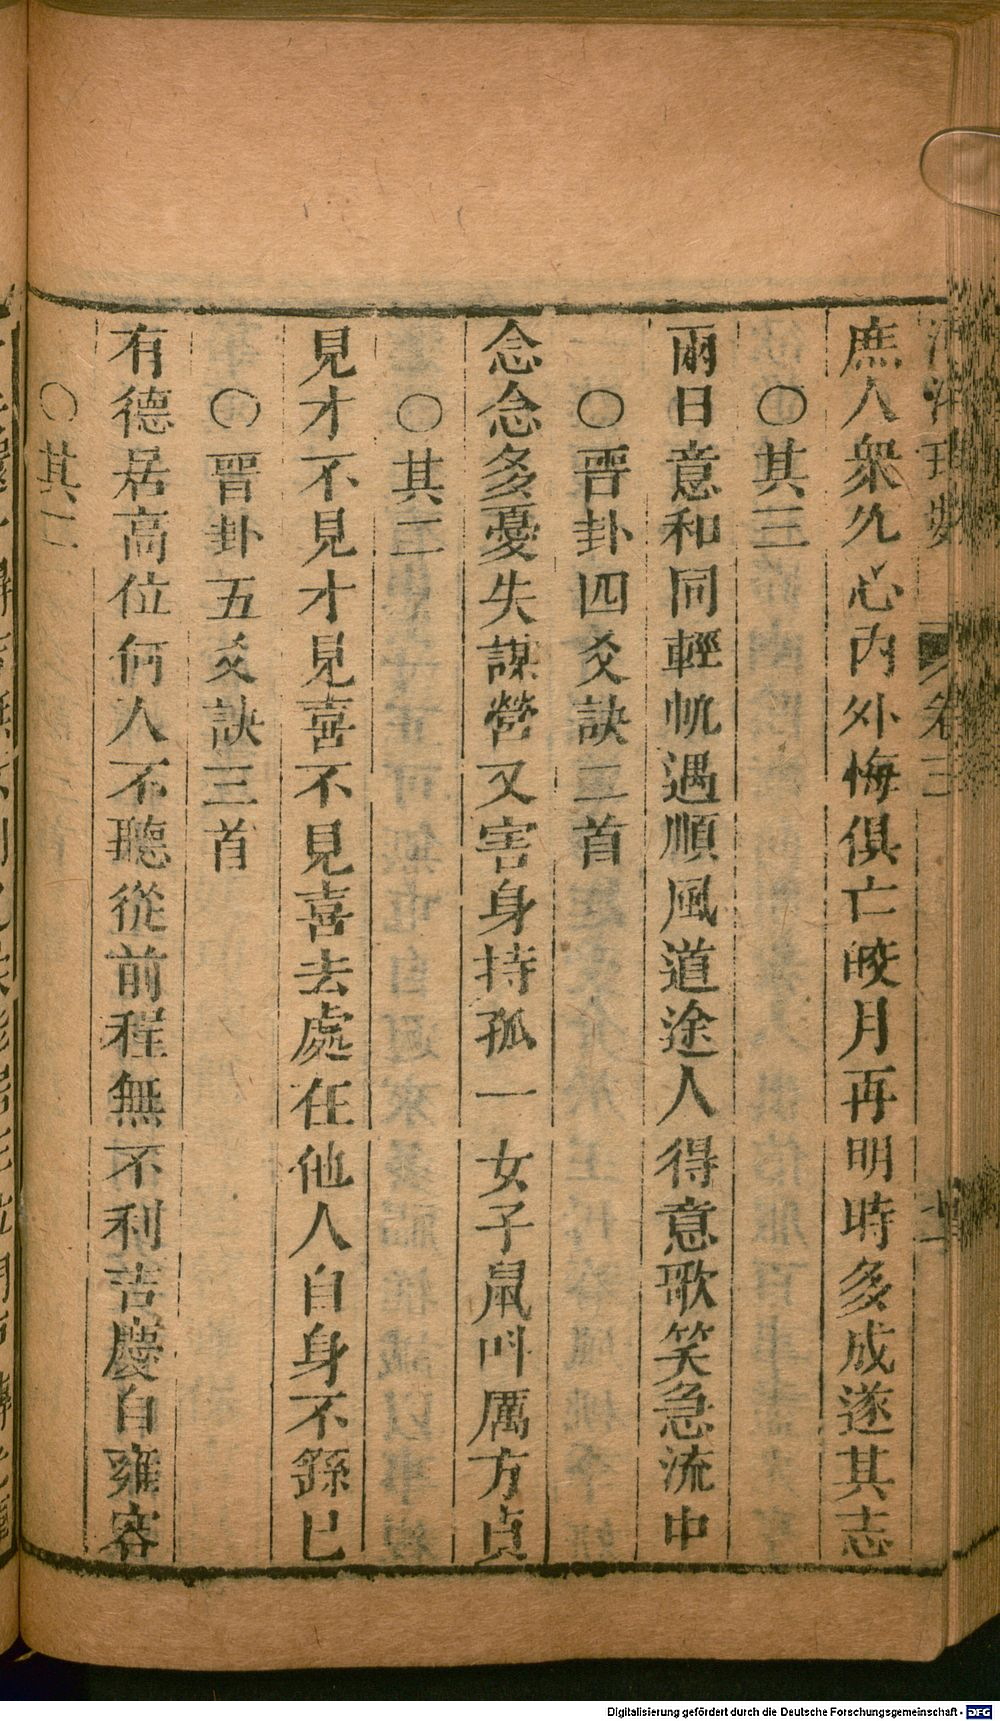 河洛理數 卷三
庶人衆允心內外悔俱亡皎月再明時多成遂其志
〇其三
兩日意和同輕帆遇順風道途人得意歌笑急流中
〇晋卦四爻訣二首
念念多憂失謀營又害身持孤一女子鼠叫厲方貞
〇其二
見才不見才見喜不見喜去處在他人自身不繇已
〇晋卦五爻訣三首
有德居高位何人不聽從前程無不利吉慶自雍容
〇其二
Digitalisierung gefördert durch die Deutsche Forschungsgemeinschaft - DFG